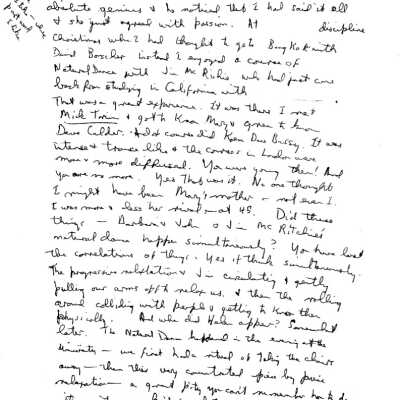 absolute genious & he noticed that I had said it all
& she just agreed with passion. At discipline
Christmas when I had thought to go to Bangkok with
David Boscher instead I enjoyed a course of
Natural Dance with Jim Mc Ritchie who had just come
back from studying in California with
That was a great experience. It was there I met
Mick Train & got to know Mary & grew to know
Dave Calder. And of course did know Dave Bursey. It was
intense & trance like & the courses in London were
more & more diffused. You were young then! And
you are no more. Yes that was it. No one thought
I might have been Mary's mother – not even I.
I was more & less her rival – at 45. Did these
things – Barbara & John & Jim Mc Ritchies
natural dance happen simultaneously? You have lost
the correlations of things. Yes I think simultaneously.
The progressive relaxation & Jim circulating & gently
pulling our arms off to relax us. & then the rolling
around colliding with people & getting to know them
physically. And where did Helen appear? Somewhat
later. The Natural Dance happened in the evening at the
University – we first had a ritual of taking the chairs
away – then this very commutated piece by piece
relaxation – a great pity you can't remember how to do